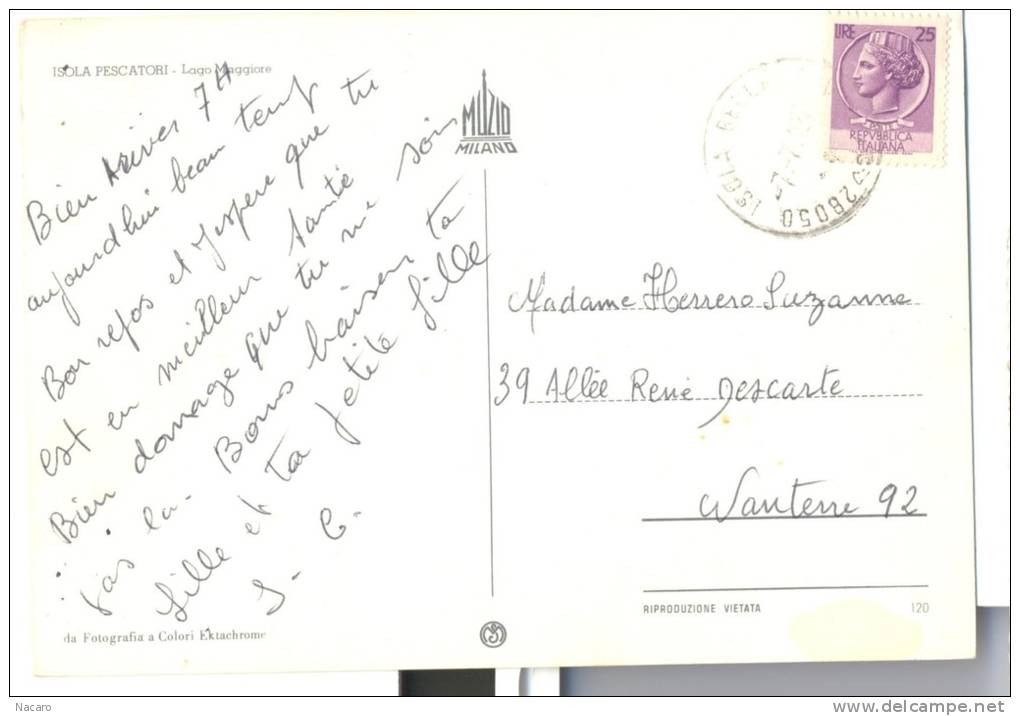 ISOLA PESCATORI - Lago Maggiore
Bien Arivés 7H
aujourdhui beau temps
Bon repos et Jespere que tu
est en meilleur santé
Bien domage que tu ne sois
pas la. Bons baisers ta
fille et ta petite fille
S. C.
da Fotografia a Colori Ektachrome
MUZIO
MILANO
LIRE 25
REPVBBLICA
ITALIANA
28050 ISOLA BELLA
Madame Herrero Suzanne
39 Allée René Descarte
Nanterre 92
RIPRODUZIONE VIETATA 120
Nacaro
www.delcampe.net